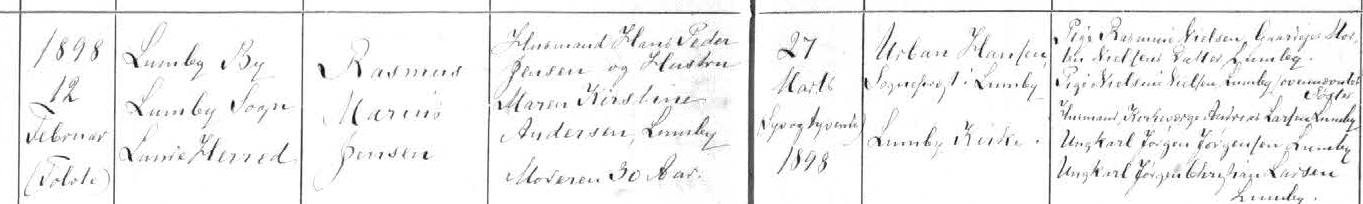 1898
12
Februar
(Tolvte)
Lumby By
Lumby Sogn
Lunde Herred
Rasmus
Marius
Jensen
Husmand Hans Peder
Jensen og Hustru
Maren Kirstine
Andersen, Lumby
Moderen 30 Aar.
27
Marts
(Syvogtyvende)
1898
Urban Hansen,
Sognepræst i Lumby
Lumby Kirke.
Pige Rasmine Nielsen, Gaardejer
Nielsens Datter Lumby.
Pige Nielsine Nielsen, Lumby, ovennævntes
Søster
Husmand, Kirkeværge Andreas Larsen Lumby
Ungkarl Jørgen Jørgensen Lumby
Ungkarl Jørgen Christian Larsen
Lumby.